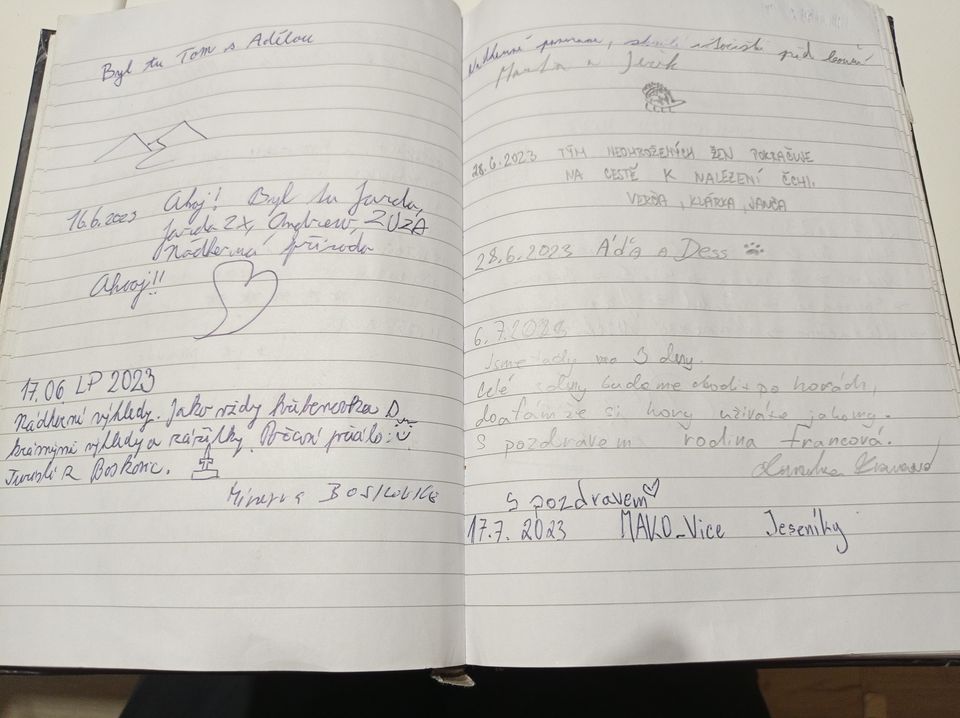 Byl tu Tom s Adélou
16.6.2023 Ahoj! Byl tu Jarda,
Jarda 2x, Andrew, ZUZA
Nádherná příroda
Ahoj!!
17.06 LP 2023
Nádherné výhledy. Jako vždy
krásnými výhledy a zážitky. Počasí přálo :)
Turisti z Boskovic.
Minerva BOSKOVICE
Nádherné panorama, před bouří
Martin a
28.6.2023 TÝM NEOHROŽENÝCH ŽEN POKRAČUJE
NA CESTĚ K NALEZENÍ ČCHI.
VERČA, KLÁRKA, JANČA
28.6.2023 Áďa a Dess
6.7.2023
Jsme tady na 3 dny.
Celé 3 dny budeme chodit po horách,
doufám že si hory užíváte jako my.
S pozdravem rodina Francová.
S pozdravem
17.7. 2023 MAKO_Vice Jeseníky